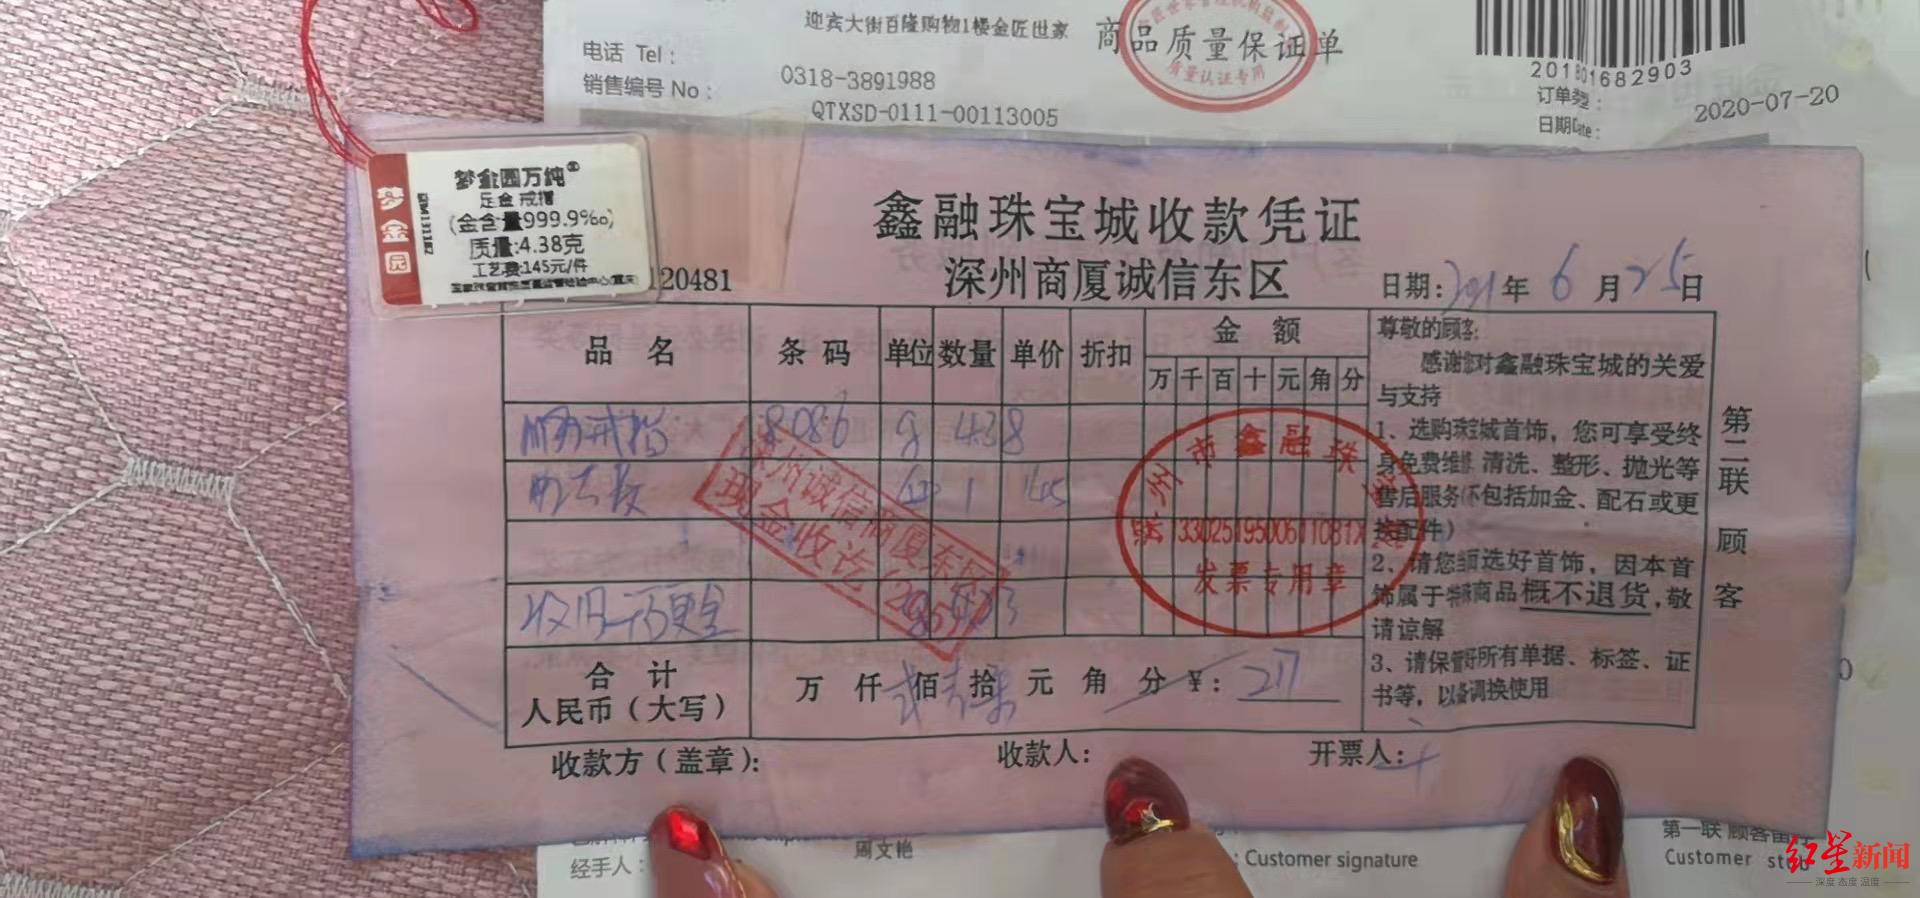 迎宾大街百隆购物1楼金匠世家
商品质量保证单
电话 Tel：
0318-3891988
销售编号 No：
QTXSD-0111-00113005
质量认证专用
201801682903
订单类型：
2020-07-20
日期Date：
梦金园
梦金园万纯®
足金 戒指
(金含量999.9‰)
质量:4.38克
工艺费:145元/件
120481
鑫融珠宝城收款凭证
深州商厦诚信东区
日期: 2021年 6月 25日
品 名 条 码 单位 数量 单价 折扣 金 额
万 千 百 十 元 角 分
戒指 8086 g 4.38
1 145
合 计
人民币（大写）
万 仟 佰 拾 元 角 分 ¥: 217
收款方（盖章）:
收款人:
开票人:
深州诚信商厦东区
现金收讫
深州市鑫融珠宝
13302519500611081X
发票专用章
尊敬的顾客:
感谢您对鑫融珠宝城的关爱
与支持
1、选购珠宝城首饰，您可享受终
身免费维修、清洗、整形、抛光等
售后服务（不包括加金、配石或更
换配件）
2、请您细选好首饰，因本首
饰属于特殊商品概不退货,敬
请谅解
3、请保管好所有单据、标签、证
书等，以备调换使用
第二联 顾客
经手人：
周文艳
: Customer signature
第一联 顾客留
Customer
红星新闻
深度 态度 温度